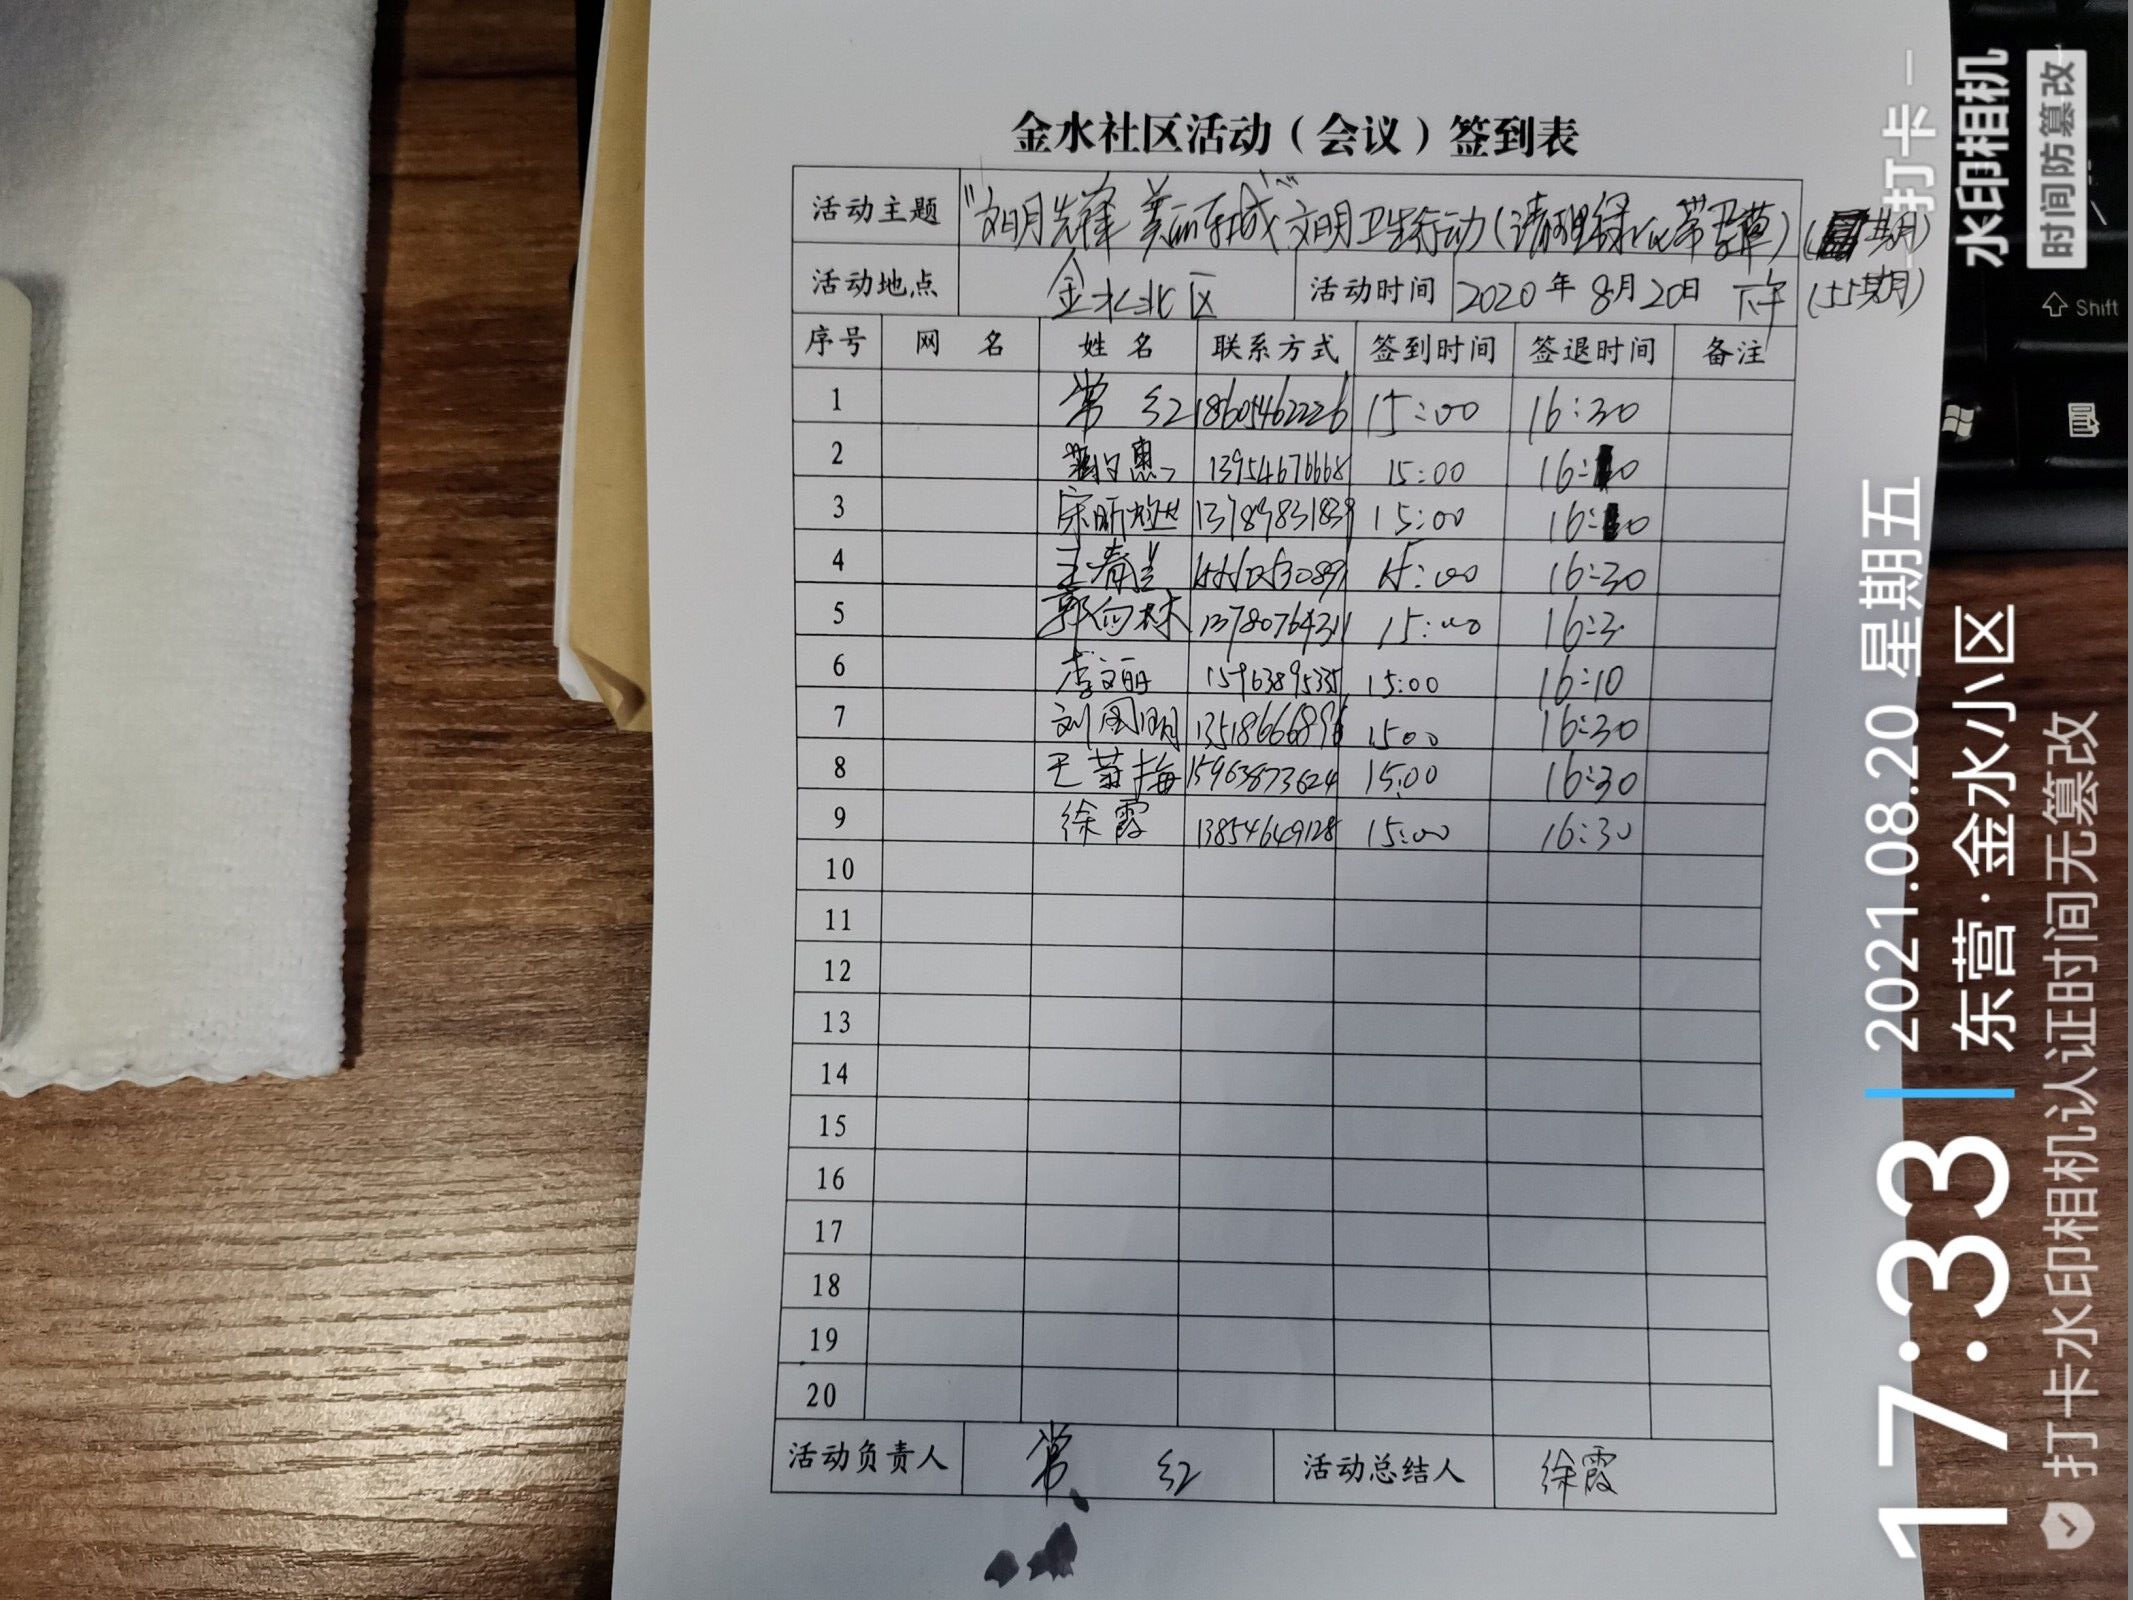 金水社区活动（会议）签到表
活动主题 "文明先锋 美丽东城" 文明卫生行动(清理绿化带杂草)
活动地点 金水北区 活动时间 2020年8月20日 下午 (55期)
序号 网 名 姓 名 联系方式 签到时间 签退时间 备注
1 常红 18605462226 15:00 16:30
2 13954676668 15:00
3 15:00
4 15:00 16:30
5 郭向林 15:00
6 李文丽 15:00 16:10
7 刘国明 13518666896 1500 16:30
8 王菊梅 15963873624 15:00 16:30
9 徐霞 13854649128 15:00 16:30
10
11
12
13
14
15
16
17
18
19
20
活动负责人 常红 活动总结人 徐霞
Shift
打卡
水印相机
时间防篡改
17:33
2021.08.20 星期五
东营·金水小区
打卡水印相机认证时间无篡改